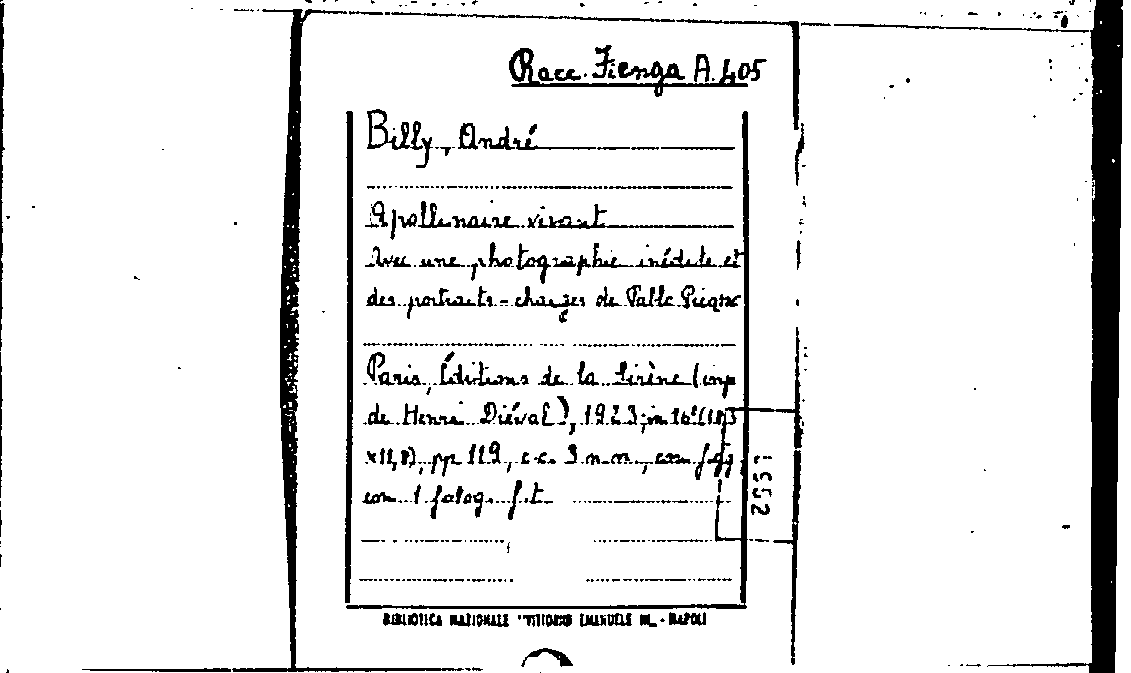 Racc. Fienga A. 405
Billy, André
Apollinaire vivant
Avec une photographie inédite et
des portraits-charges de Pablo Picasso
Paris, Éditions de la Sirène (imp
de Henri Diéval), 1923; in 16° (18,3
x11,8), pp 119, c.c. 3 n.n., con figg.
con 1 fotog. f.t
1552
BIBLIOTECA NAZIONALE "VITTORIO EMANUELE III„ - NAPOLI